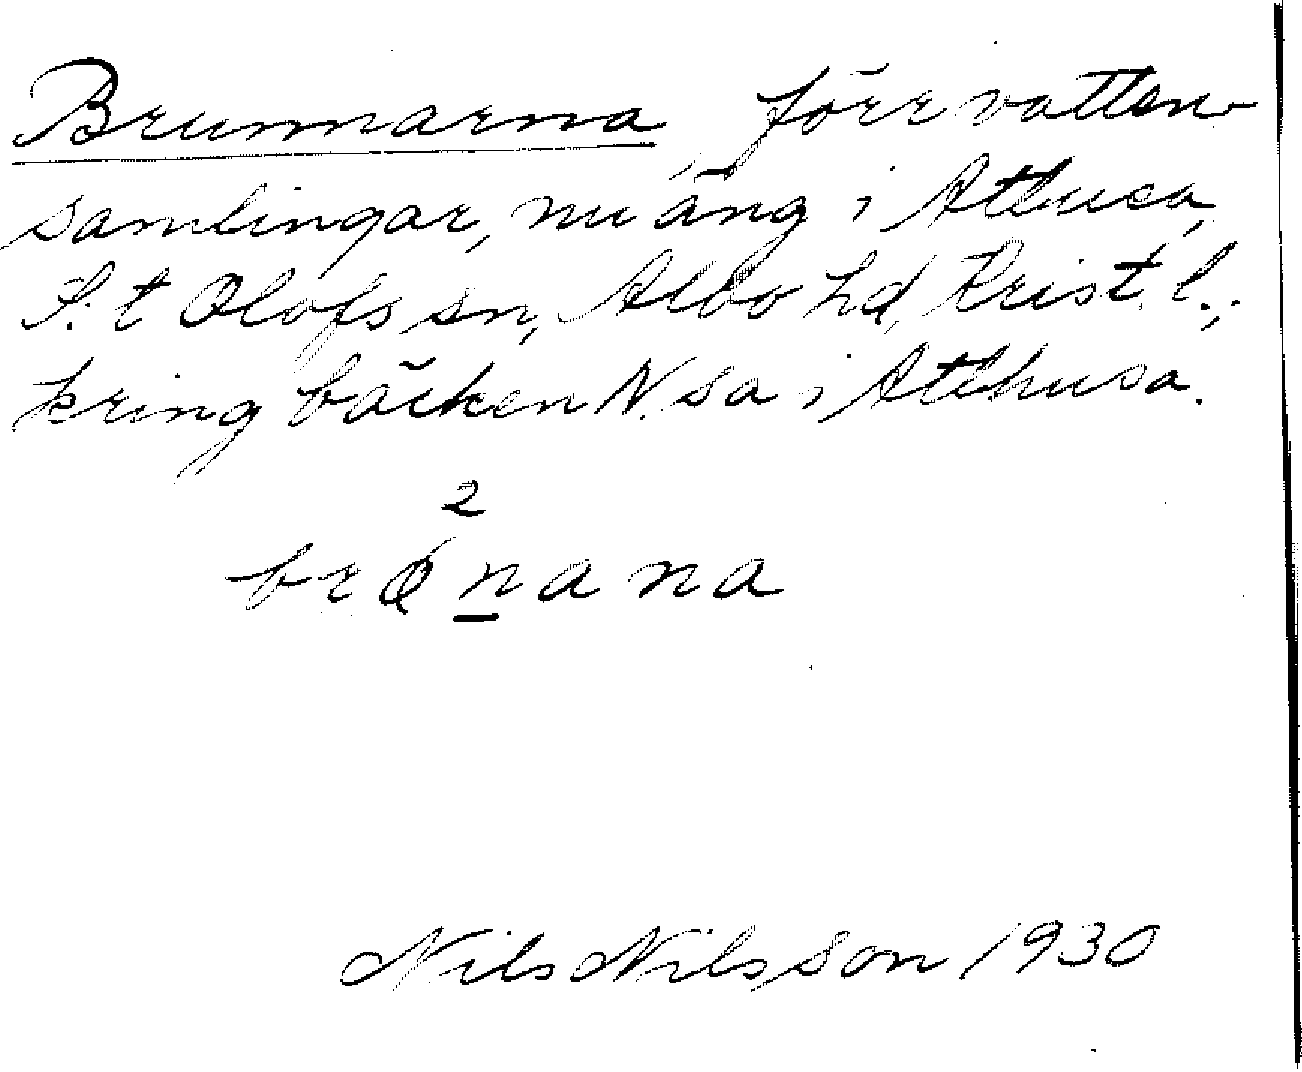 Brunnarna förr vatten
samlingar, nu äng i Attusa,
S:t Olofs sn, Albo hd, Krist. l.;
kring bäcken N. sa i Attusa.
2
brǫ́nana
Nils Nilsson 1930